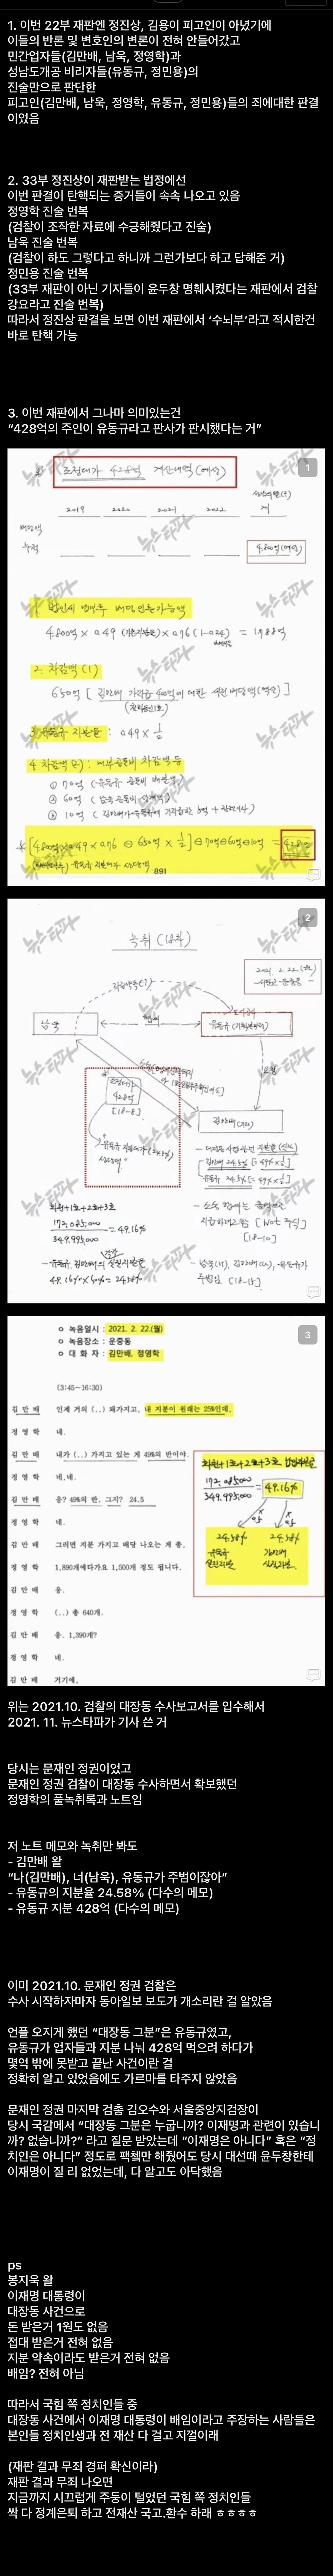 1. 이번 22부 재판엔 정진상, 김용이 피고인이 아녔기에
이들의 반론 및 변호인의 변론이 전혀 안들어갔고
민간업자들(김만배, 남욱, 정영학)과
성남도개공 비리자들(유동규, 정민용)의
진술만으로 판단한
피고인(김만배, 남욱, 정영학, 유동규, 정민용)들의 죄에대한 판결
이었음
2. 33부 정진상이 재판받는 법정에선
이번 판결이 탄핵되는 증거들이 속속 나오고 있음
정영학 진술 번복
(검찰이 조작한 자료에 수긍해줬다고 진술)
남욱 진술 번복
(검찰이 하도 그렇다고 하니까 그런가보다 하고 답해준 거)
정민용 진술 번복
(33부 재판이 아닌 기자들이 윤두창 명훼시켰다는 재판에서 검찰
강요라고 진술 번복)
따라서 정진상 판결을 보면 이번 재판에서 ‘수뇌부’라고 적시한건
바로 탄핵 가능
3. 이번 재판에서 그나마 의미있는건
“428억의 주인이 유동규라고 판사가 판시했다는 거”
1
뉴스타파
2019 2020 2021 2022
계
누적
4800억(예상)
2. 차감액(1)
891
2
뉴스타파
녹취 (18차)
남욱
428억
[18-8]
173,085,000
349,995,000
= 49.16%
[18-10]
[18-15]
3
ㅇ 녹음일시 : 2021. 2. 22.(월)
ㅇ 녹음장소 : 운중동
ㅇ 대 화 자 : 김만배, 정영학
(3:45~16:30)
김 만 배 인제 거의 (..) 돼가지고, 내 지분이 원래는 25%인데,
정 영 학 네.
김 만 배 내가 (..) 가지고 있는 게 49%의 반이야.
정 영 학 네,네.
김 만 배 응? 49%의 반, 그지? 24.5
정 영 학 네.
김 만 배 그러면 지분 가지고 배당 나오는 게 총,
정 영 학 1,890에다가요 1,500개 정도 됩니다.
김 만 배 응.
정 영 학 (..) 총 640개.
김 만 배 응. 1,390개?
정 영 학 네.
김 만 배 거기에,
173,085,000
349,995,000
= 49.16%
24.58% 24.58%
유동규 김만배
위는 2021.10. 검찰의 대장동 수사보고서를 입수해서
2021. 11. 뉴스타파가 기사 쓴 거
당시는 문재인 정권이었고
문재인 정권 검찰이 대장동 수사하면서 확보했던
정영학의 풀녹취록과 노트임
저 노트 메모와 녹취만 봐도
- 김만배 왈
“나(김만배), 너(남욱), 유동규가 주범이잖아”
- 유동규의 지분율 24.58% (다수의 메모)
- 유동규 지분 428억 (다수의 메모)
이미 2021.10. 문재인 정권 검찰은
수사 시작하자마자 동아일보 보도가 개소리란 걸 알았음
언플 오지게 했던 “대장동 그분”은 유동규였고,
유동규가 업자들과 지분 나눠 428억 먹으려 하다가
몇억 밖에 못받고 끝난 사건이란 걸
정확히 알고 있었음에도 가르마를 타주지 않았음
문재인 정권 마지막 검총 김오수와 서울중앙지검장이
당시 국감에서 “대장동 그분은 누굽니까? 이재명과 관련이 있습니
까? 없습니까?” 라고 질문 받았는데 “이재명은 아니다” 혹은 “정
치인은 아니다” 정도로 팩첵만 해줬어도 당시 대선때 윤두창한테
이재명이 질 리 없었는데, 다 알고도 아닥했음
ps
봉지욱 왈
이재명 대통령이
대장동 사건으로
돈 받은거 1원도 없음
접대 받은거 전혀 없음
지분 약속이라도 받은거 전혀 없음
배임? 전혀 아님
따라서 국힘 쪽 정치인들 중
대장동 사건에서 이재명 대통령이 배임이라고 주장하는 사람들은
본인들 정치인생과 전 재산 다 걸고 지껄이래
(재판 결과 무죄 경퍼 확신이라)
재판 결과 무죄 나오면
지금까지 시끄럽게 주둥이 털었던 국힘 쪽 정치인들
싹 다 정계은퇴 하고 전재산 국고.환수 하래 ㅎㅎㅎㅎ